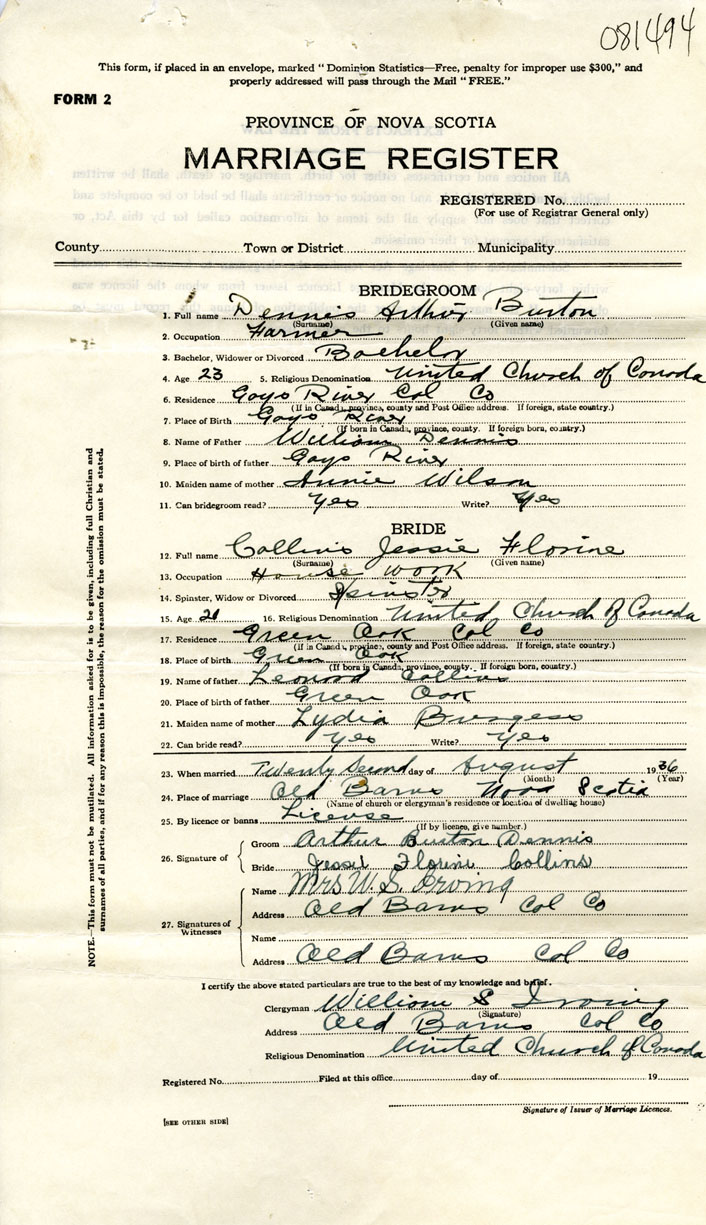 081494
This form, if placed in an envelope, marked "Dominion Statistics—Free, penalty for improper use $300," and
properly addressed will pass through the Mail "FREE."
FORM 2
PROVINCE OF NOVA SCOTIA
MARRIAGE REGISTER
REGISTERED No.
(For use of Registrar General only)
County Town or District Municipality
BRIDEGROOM
1. Full name Dennis Arthur Burton
(Surname) (Given name)
2. Occupation Farmer
3. Bachelor, Widower or Divorced Bachelor
4. Age 23 5. Religious Denomination United Church of Canada
6. Residence Gays River Col Co
(If in Canada, province, county and Post Office address. If foreign, state country.)
7. Place of Birth Gays River
(If born in Canada, province, county. If foreign born, country.)
8. Name of Father William Dennis
9. Place of birth of father Gays River
10. Maiden name of mother Annie Wilson
11. Can bridegroom read? Yes Write? Yes
BRIDE
12. Full name Collins Jessie Florine
(Surname) (Given name)
13. Occupation House work
14. Spinster, Widow or Divorced Spinster
15. Age 21 16. Religious Denomination United Church of Canada
17. Residence Green Oak Col Co
(If in Canada, province, county and Post Office address. If foreign, state country.)
18. Place of birth Green Oak
(If born in Canada, province, county. If foreign born, country.)
19. Name of father Leonard Collins
20. Place of birth of father Green Oak
21. Maiden name of mother Lydia Burgess
22. Can bride read? Yes Write? Yes
23. When married Twenty Second day of August 1936
(Month) (Year)
24. Place of marriage Old Barns Nova Scotia
(Name of church or clergyman's residence or location of dwelling house)
25. By licence or banns License
(If by licence, give number.)
26. Signature of
Groom Arthur Burton Dennis
Bride Jessie Florine Collins
27. Signatures of Witnesses
Name Mrs W. S. Irving
Address Old Barns Col Co
Name
Address Old Barns Col Co
I certify the above stated particulars are true to the best of my knowledge and belief.
Clergyman William S Irving
(Signature)
Address Old Barns Col Co
Religious Denomination United Church of Canada
Registered No. Filed at this office day of 19
Signature of Issuer of Marriage Licences.
[SEE OTHER SIDE]
NOTE.—This form must not be mutilated. All information asked for is to be given, including full Christian and
surnames of all parties, and if for any reason this is impossible, the reason for the omission must be stated.